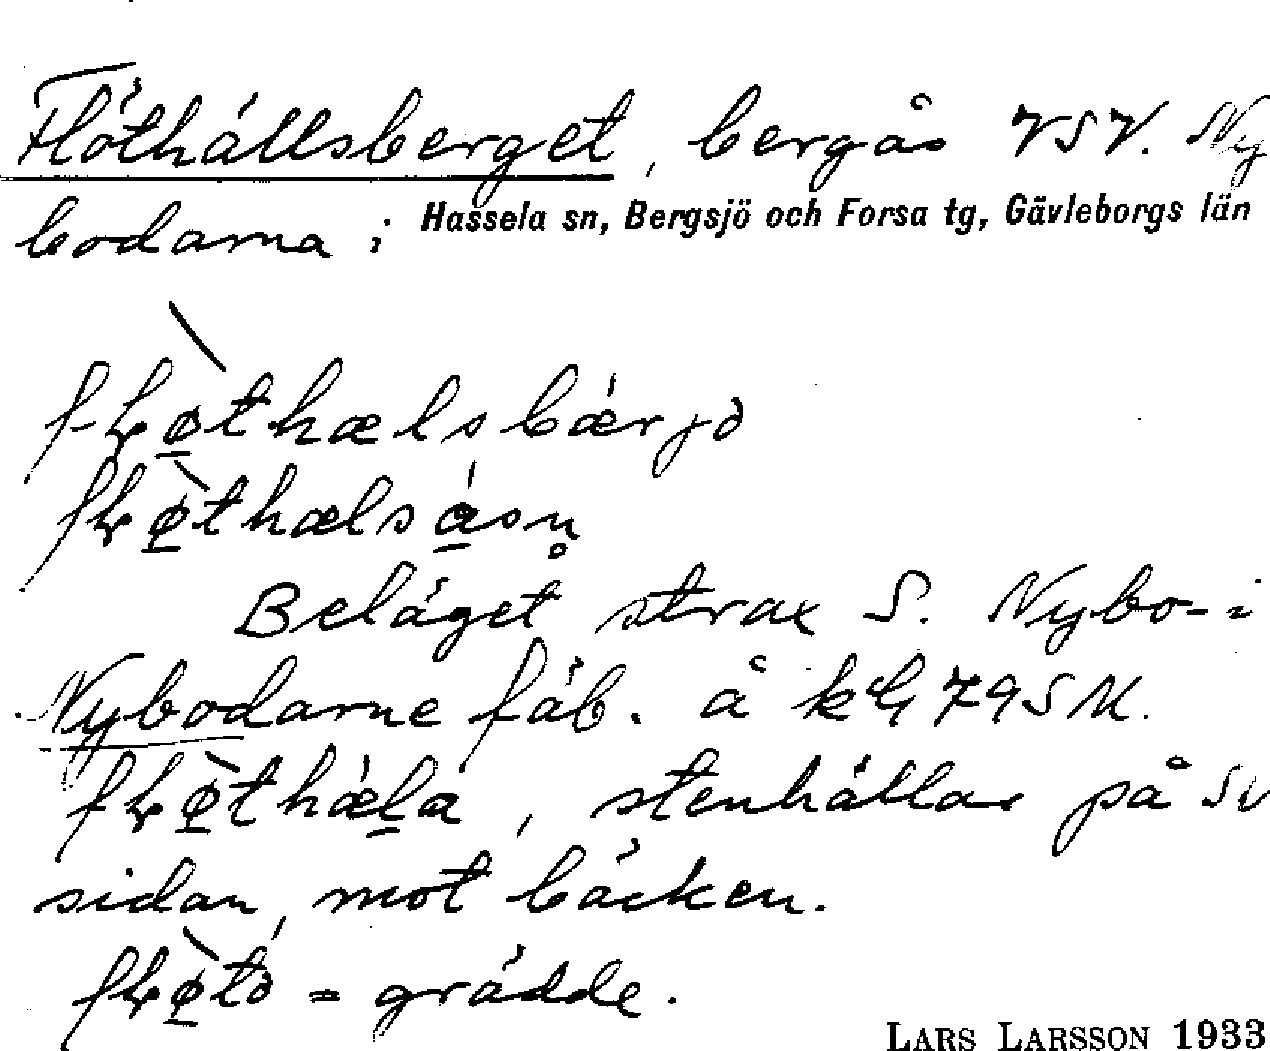 Flöthällsberget, bergås VSV. Ny
bodarna; Hassela sn, Bergsjö och Forsa tg, Gävleborgs län
fḷø̀thælsbǽrjə
fḷø̀thælsásn̥
Beläget strax S. Nybo-
Nybodarne fäb. å
fḷø̀thæla, stenhällar på SV
sidan, mot bäcken.
fḷø̀tə = grädde.
LARS LARSSON 1933